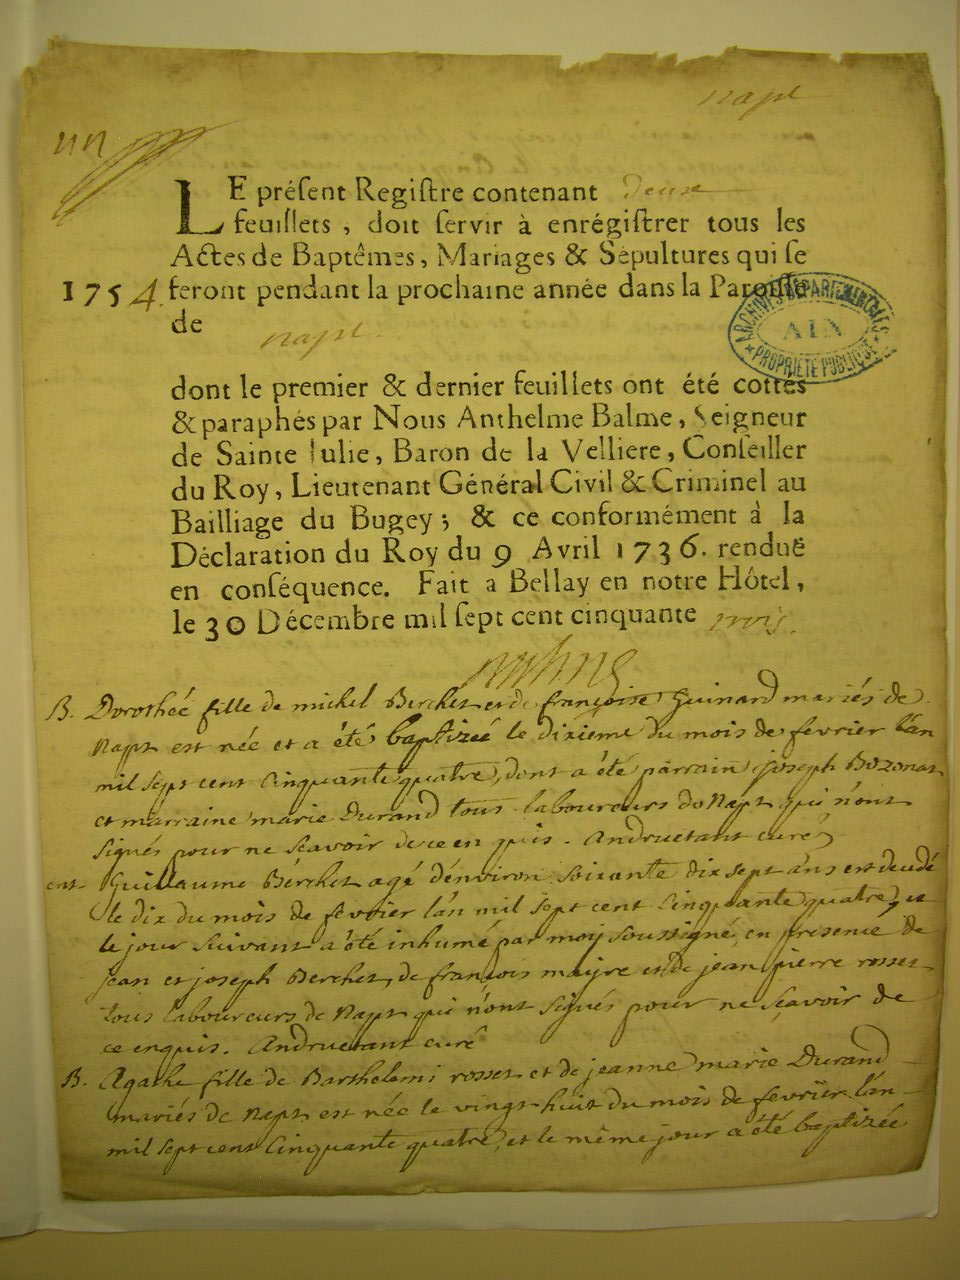 napt
un
LE préſent Regiſtre contenant deux
feuillets, doit ſervir à enrégiſtrer tous les
Actes de Baptêmes, Mariages & Sépultures qui ſe
1754. feront pendant la prochaine année dans la Paroiſſe
de napt
ARCHIVES DÉPARTEMENTALES
AIN
PROPRIÉTÉ PUBLIQUE
dont le premier & dernier feuillets ont été cottés
& paraphés par Nous Anthelme Balme, Seigneur
de Sainte Julie, Baron de la Velliere, Conſeiller
du Roy, Lieutenant Général Civil & Criminel au
Bailliage du Bugey; & ce conformément à la
Déclaration du Roy du 9 Avril 1736. renduë
en conſéquence. Fait a Bellay en notre Hôtel,
le 30 Décembre mil ſept cent cinquante trois.
B. Dorothéé fille de michel Berchet et de françoise Guinard mariés de
Napt est née et a été baptizéé le dixieme du mois de fevrier l'an
mil sept cent Cinquante quatre, dont a été parrain joseph Bozonat
et marraine marie Durand tous laboureurs de Napt qui n'ont
signés pour ne sçavoir de ce enquis. Andruetant curé
ent. Guillaume Berchet agé d'environ soixante dix sept ans est decedé
le dix du mois de fevrier l'an mil sept cent Cinquante quatre, et
le jour suivant a été inhumé par moy soussigné, en presence de
jean et joseph Berchet, de francois maire et de jean pierre rosset
tous laboureurs de Napt qui n'ont signés pour ne sçavoir de
ce enquis. Andruetant curé
B. Agathe fille de Barthelemi rosset et de jeanne marie Durand
mariés de Napt est née le vingt huit du mois de fevrier l'an
mil sept cent Cinquante quatre, et le même jour a été baptizée